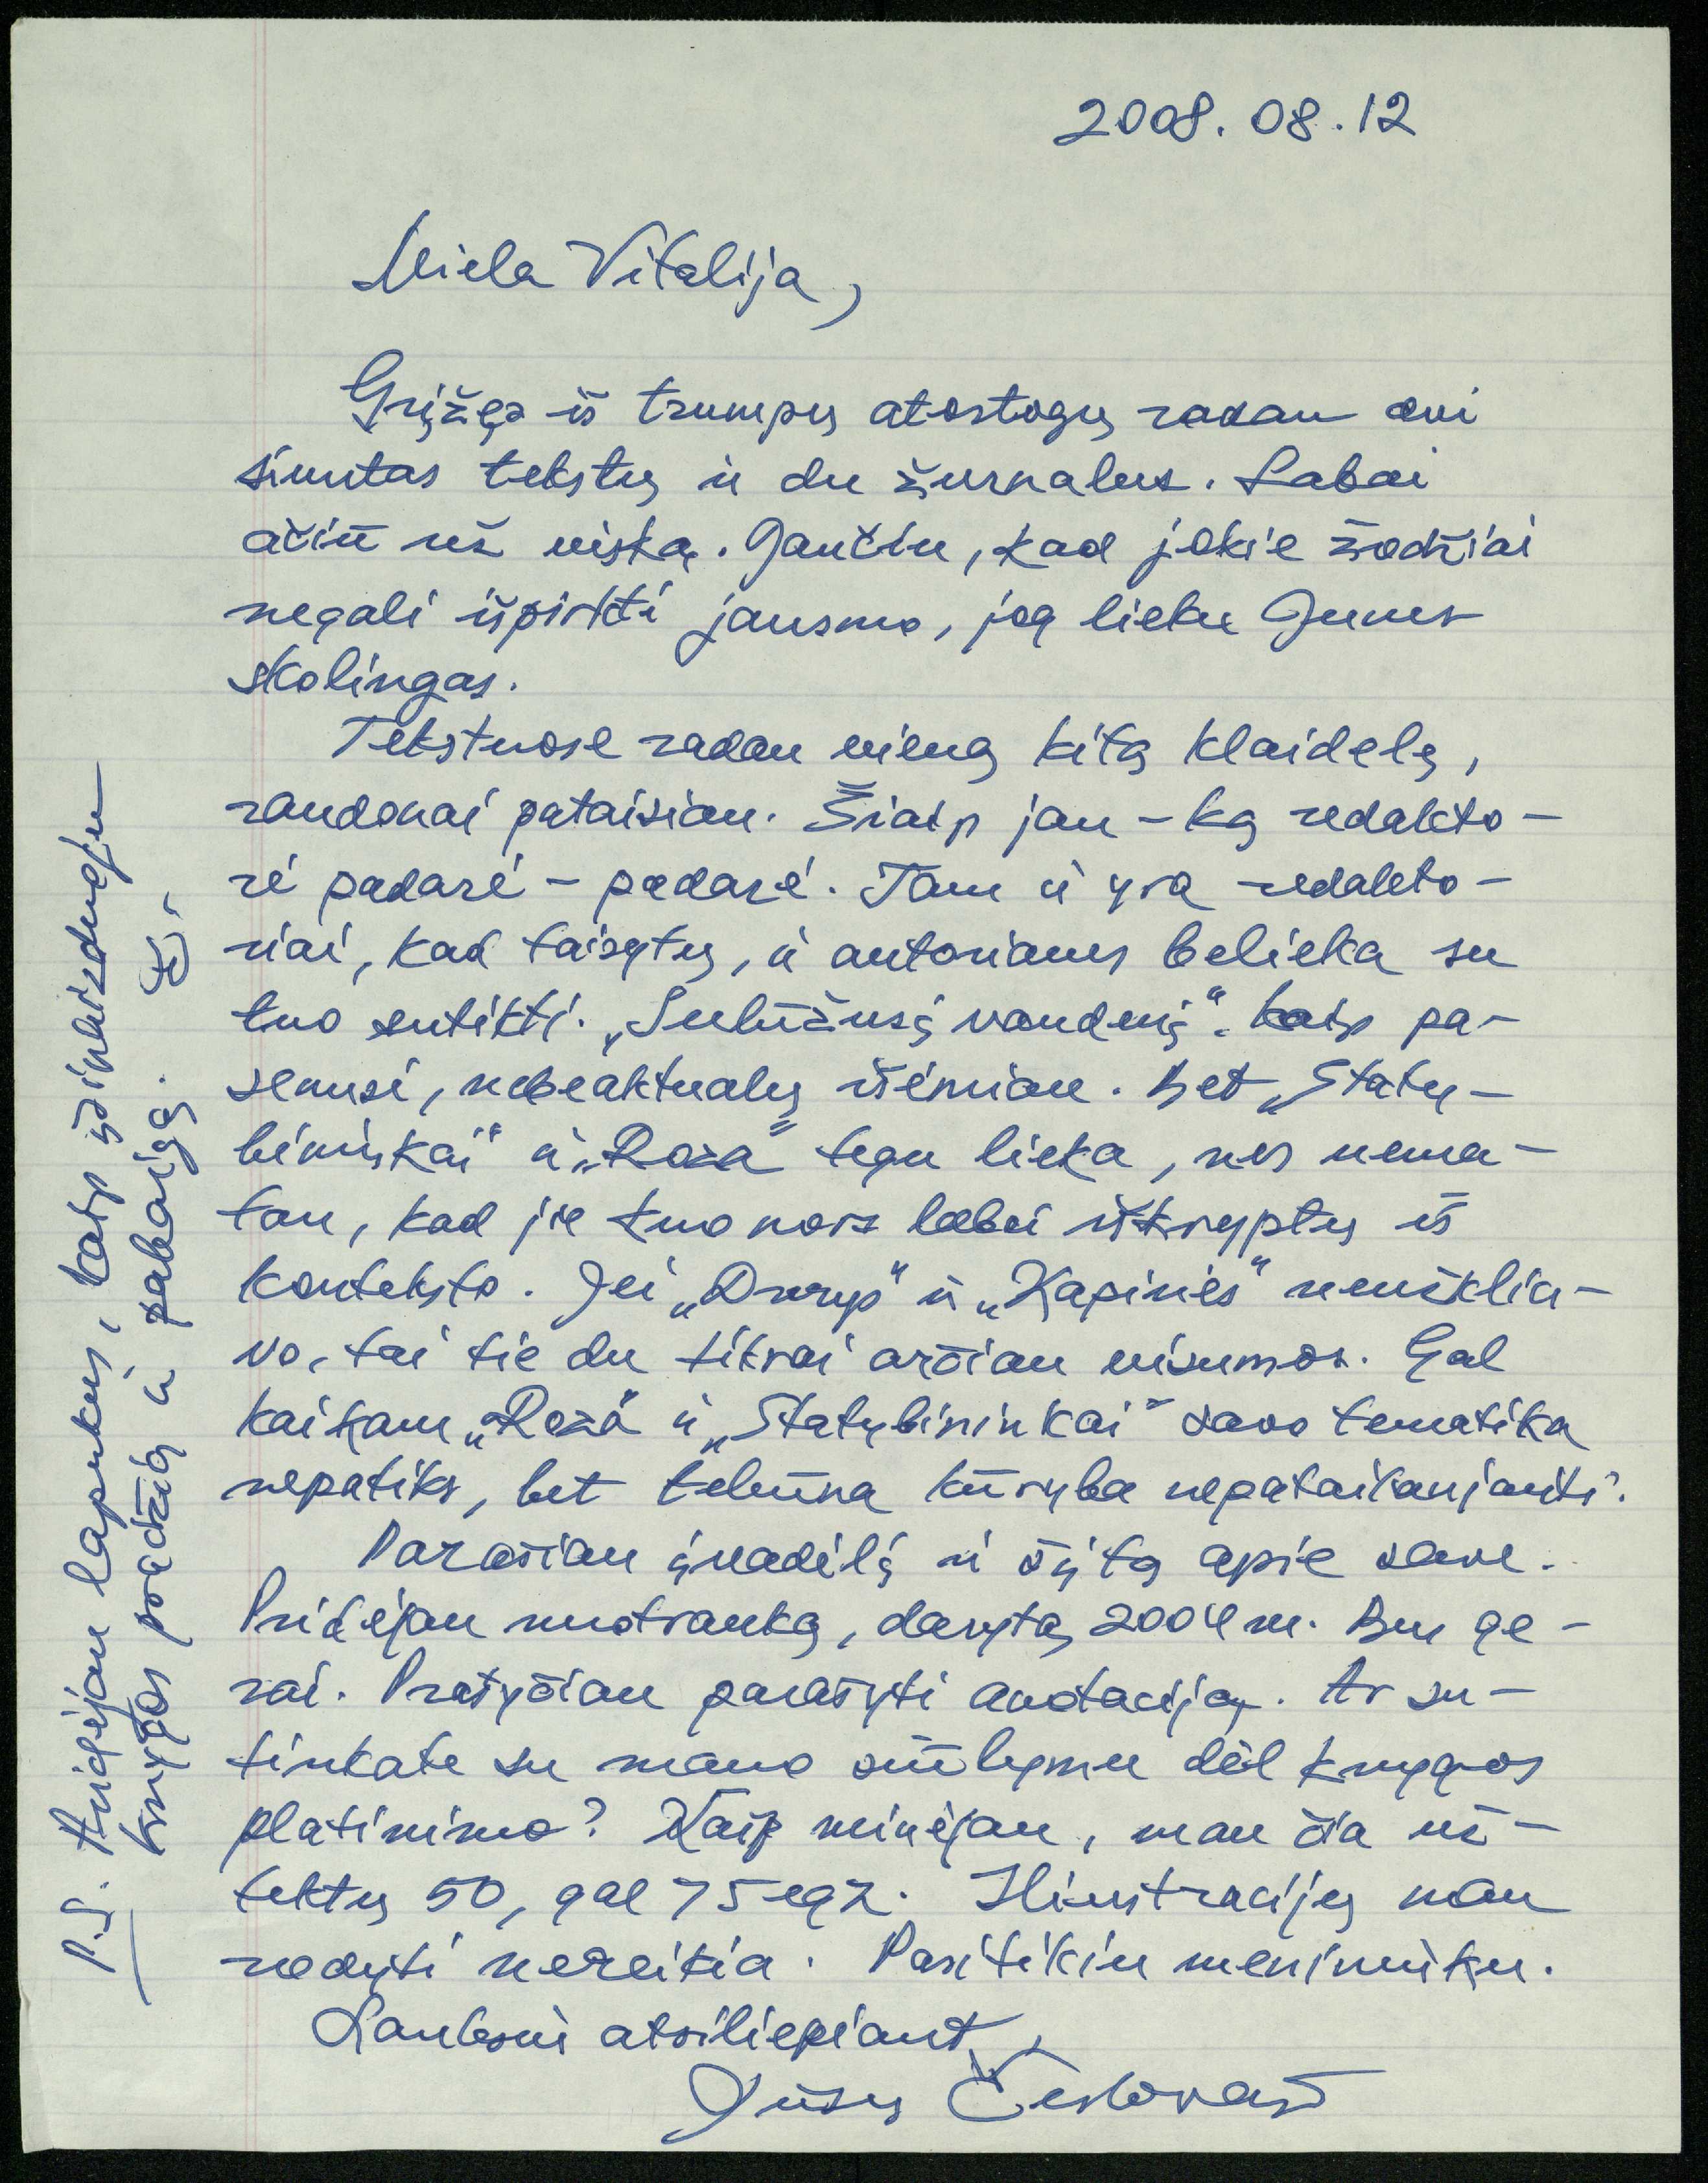 2008.08.12
Miela Vitalija,
Grįžęs iš trumpų atostogų radau dvi
siuntas tekstų ir du žurnalus. Labai
ačiū už viską. Jaučiu, kad jokie žodžiai
negali išpirkti jausmo, jog lieku Jums
skolingas.
Tekstuose radau vieną kitą klaidelę,
raudonai pataisiau. Šiaip jau – ką redakto-
rė padarė – padarė. Tam ir yra redakto-
riai, kad taisytų, ir autoriams belieka su
tuo sutikti. „Sulūžusį vandenį“ kaip pa-
senusį, nebeaktualų išėmiau. Bet „Staty-
bininkai“ ir „Roza“ tegu lieka, nes nema-
tau, kad jie kuo nors labai iškryptų iš
konteksto. Jei „Dvorys“ ir „Kapinės“ neužkliu-
vo, tai tie du tikrai arčiau visumos. Gal
kaikam „Roza“ ir „Statybininkai“ savo tematika
nepatiks, bet tebūna kūryba nepataikaujanti.
Parašiau įvadėlį ir šį tą apie save.
Pridėjau nuotrauką, darytą 2004 m. Bus ge-
rai. Prašyčiau parašyti anotaciją. Ar su-
tinkate su mano siūlymu dėl knygos
platinimo? Kaip minėjau, man čia už-
tektų 50, gal 75 egz. Iliustracijų man
rodyti nereikia. Pasitikiu menininku.
Lauksiu atsiliepiant,
Jūsų Česlovas
P.S. Pridėjau lapukus, kaip įsivaizduoju
knygos pradžią ir pabaigą. Č.